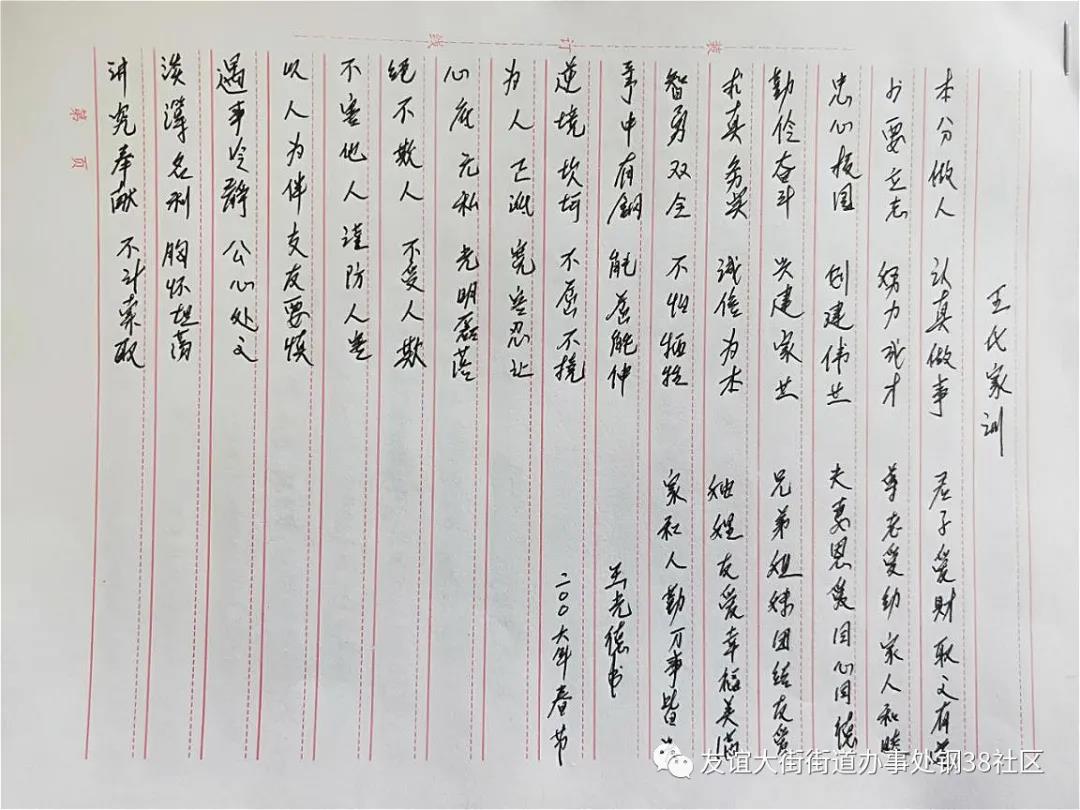 王氏家训
本分做人 认真做事
少要立志 努力成才
忠心报国 创建伟业
勤俭奋斗 兴建家业
求真务实 诚信为本
智勇双全 不怕牺牲
中有鋼 能屈能伸
逆境坎坷 不屈不挠
为人正派 宽容忍让
心底无私 光明磊落
绝不欺人 不受人欺
不害他人 谨防人害
以人为伴 交友要慎
遇事冷静 公心处之
淡薄名利 胸怀坦荡
讲究奉献 不计索取
君子爱財 取之有道
尊老爱幼 家人和睦
夫妻恩爱 同心同德
兄弟姐妹 团结友爱
妯娌友爱 幸福美满
家和人勤 万事皆
王光德书
二00六年春节
装订线
第 页
友谊大街街道办事处钢38社区